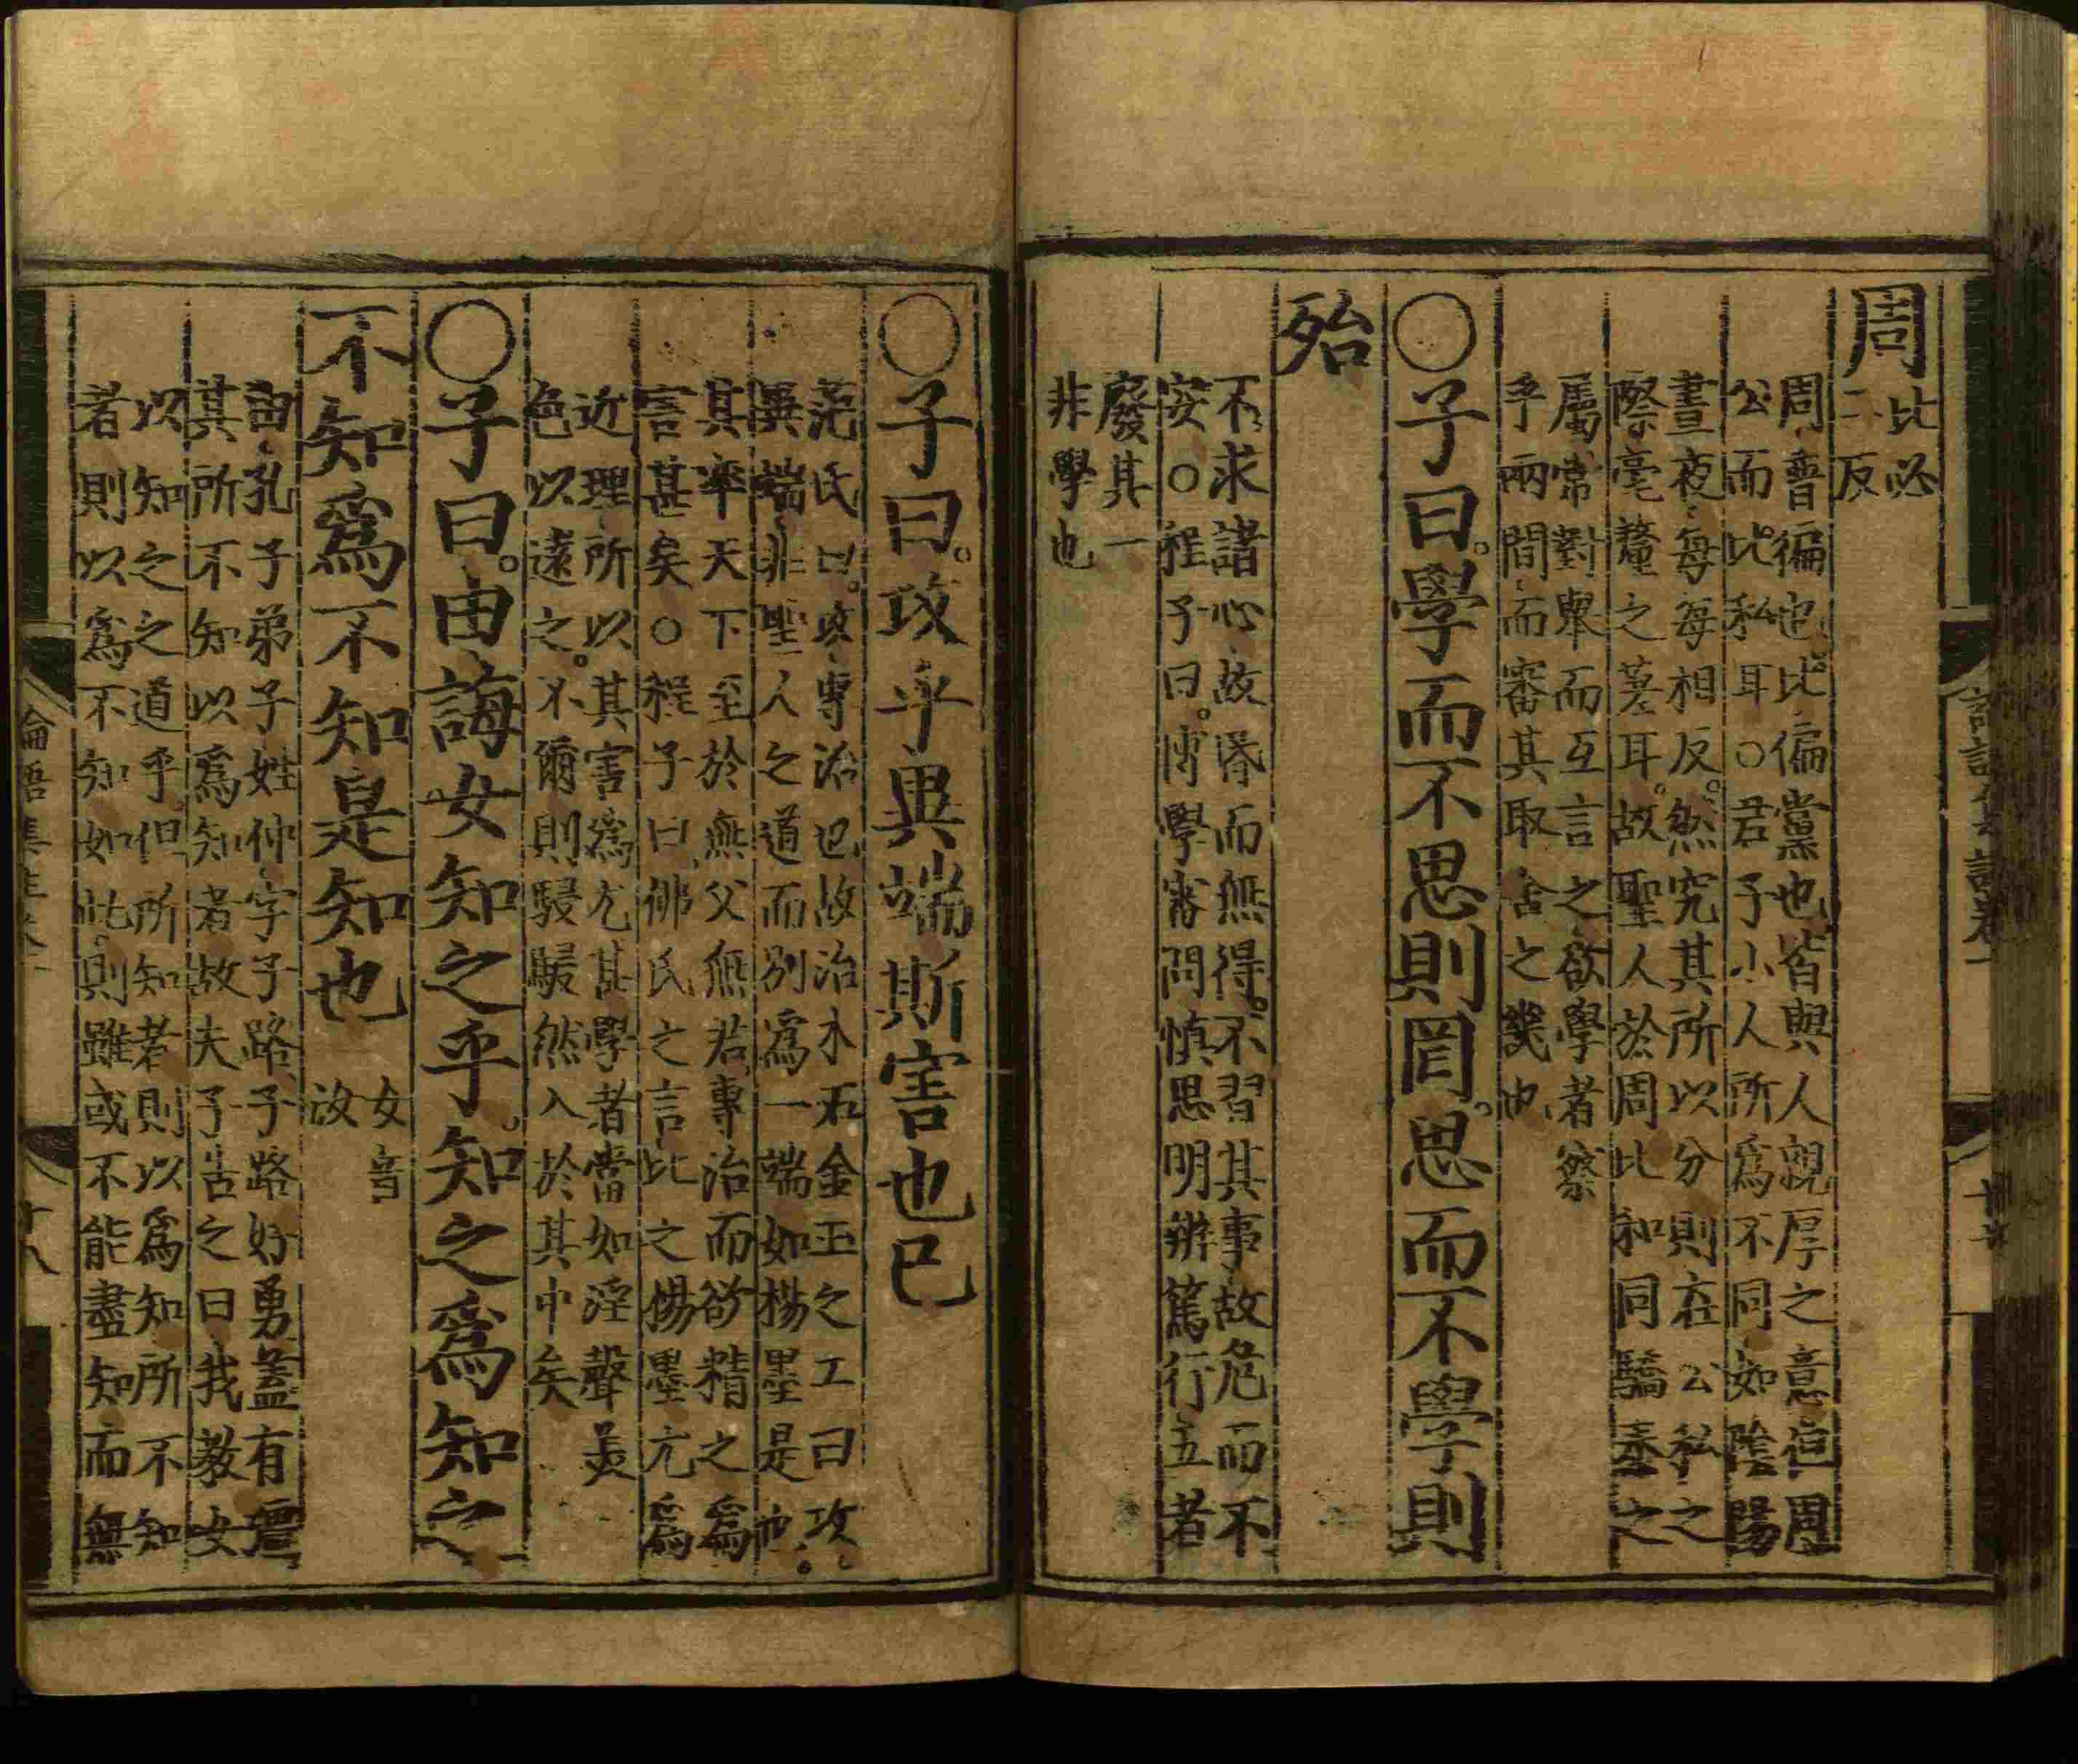 周比必
二反
周普徧也比偏黨也皆與人親厚之意但周
公而比私耳○君子小人所爲不同如陰陽
晝夜每每相反然究其所以分則在公私之
際毫釐之差耳故聖人於周比和同驕泰之
屬常對舉而互言之欲學者察
乎兩間而審其取舍之幾也
○子曰學而不思則罔思而不學則
殆
不求諸心故昏而無得不習其事故危而不
安○程子曰博學審問慎思明辨篤行五者
廢其一
非學也
○子曰攻乎異端斯害也已
范氏曰攻專治也故治木石金玉之工曰攻
異端非聖人之道而別爲一端如楊墨是也
其率天下至於無父無君專治而欲精之爲
害甚矣○程子曰佛氏之言比之楊墨尤爲
近理所以其害爲尤甚學者當如淫聲美
色以遠之不爾則駸駸然入於其中矣
○子曰由誨女知之乎知之爲知之
不知爲不知是知也女音
汝
由孔子弟子姓仲字子路子路好勇蓋有彊
其所不知以爲知者故夫子告之曰我教女
以知之之道乎但所知者則以爲知所不知
者則以爲不知如此則雖或不能盡知而無
論語集註卷一
十八